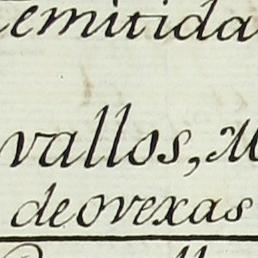 emitida
vallos, M
de ovexas